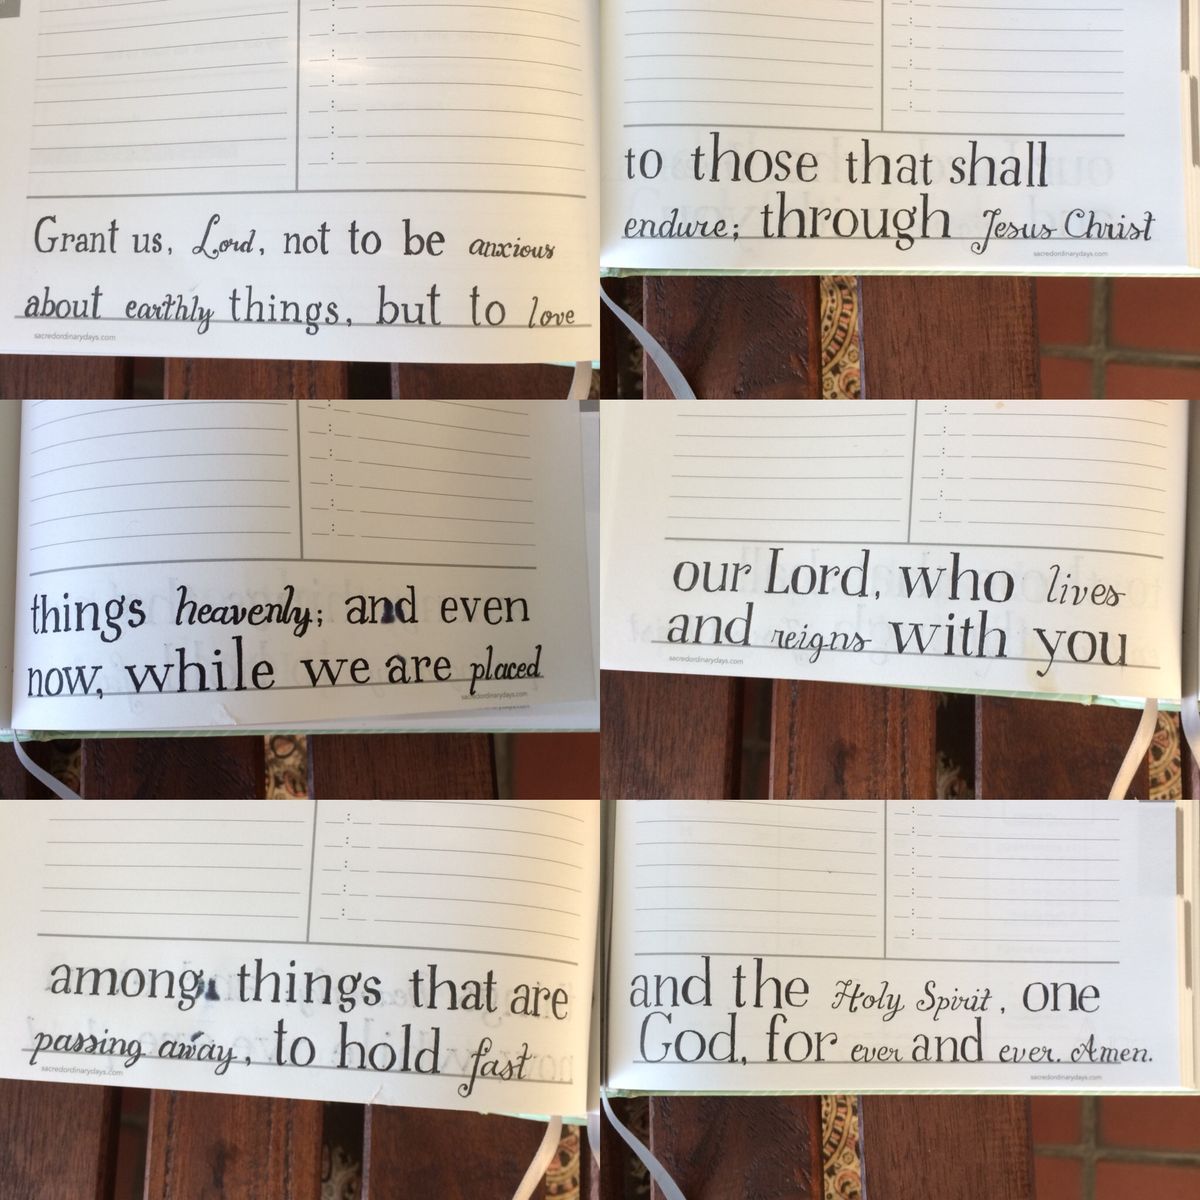 Grant us, Lord, not to be anxious
about earthly things, but to love
sacredordinarydays.com
things heavenly; and even
now, while we are placed
sacredordinarydays.com
among things that are
passing away, to hold fast
sacredordinarydays.com
to those that shall
endure; through Jesus Christ
sacredordinarydays.com
our Lord, who lives
and reigns with you
sacredordinarydays.com
and the Holy Spirit, one
God, for ever and ever. Amen.
sacredordinarydays.com